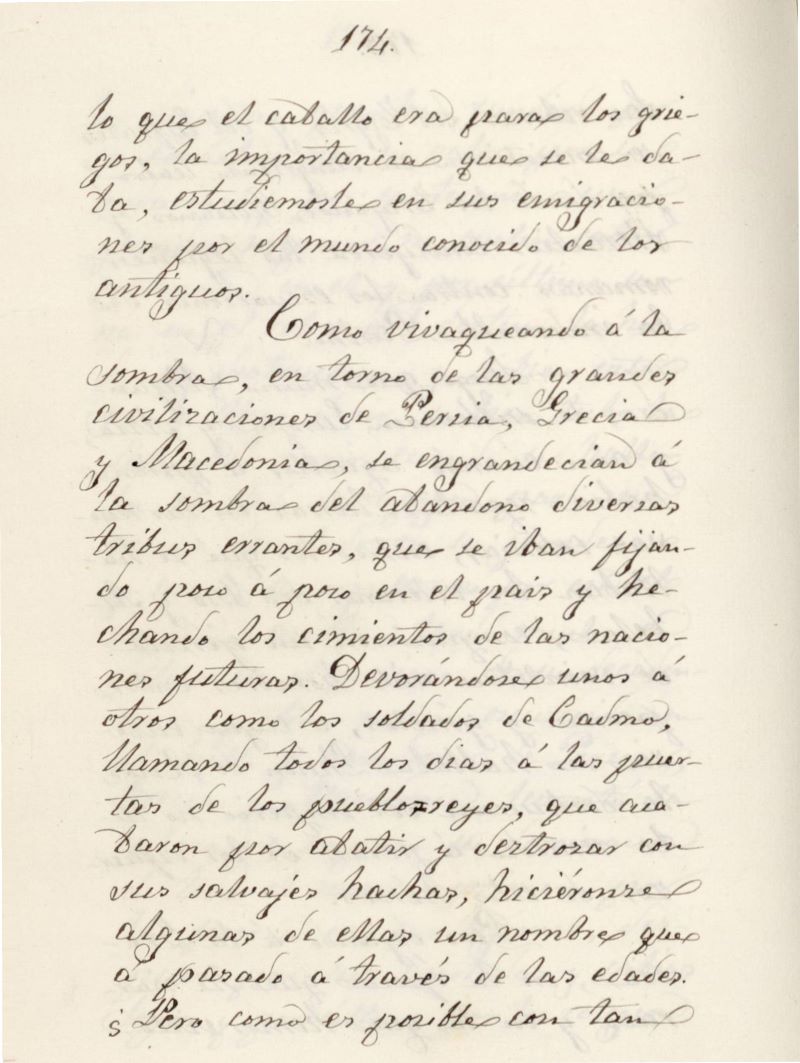 174.
lo que el caballo era para los grie-
gos, la importancia que se le da-
ba, estudiemosle en sus emigracio-
nes por el mundo conocido de los
antiguos.
Como vivaqueando á la
sombra, en torno de las grandes
civilizaciones de Persia, Grecia
y Macedonia, se engrandecian á
la sombra del abandono diversas
tribus errantes, que se iban fijan-
do poco á poco en el pais y he-
chando los cimientos de las nacio-
nes futuras. Devorándose unos á
otros como los soldados de Cadmo,
llamando todos los dias á las puer-
tas de los pueblos-reyes, que aca-
baron por abatir y destrozar con
sus salvajes hachas, hiciéronse
algunas de ellas un nombre que
á pasado á través de las edades.
¿Pero como es posible con tan